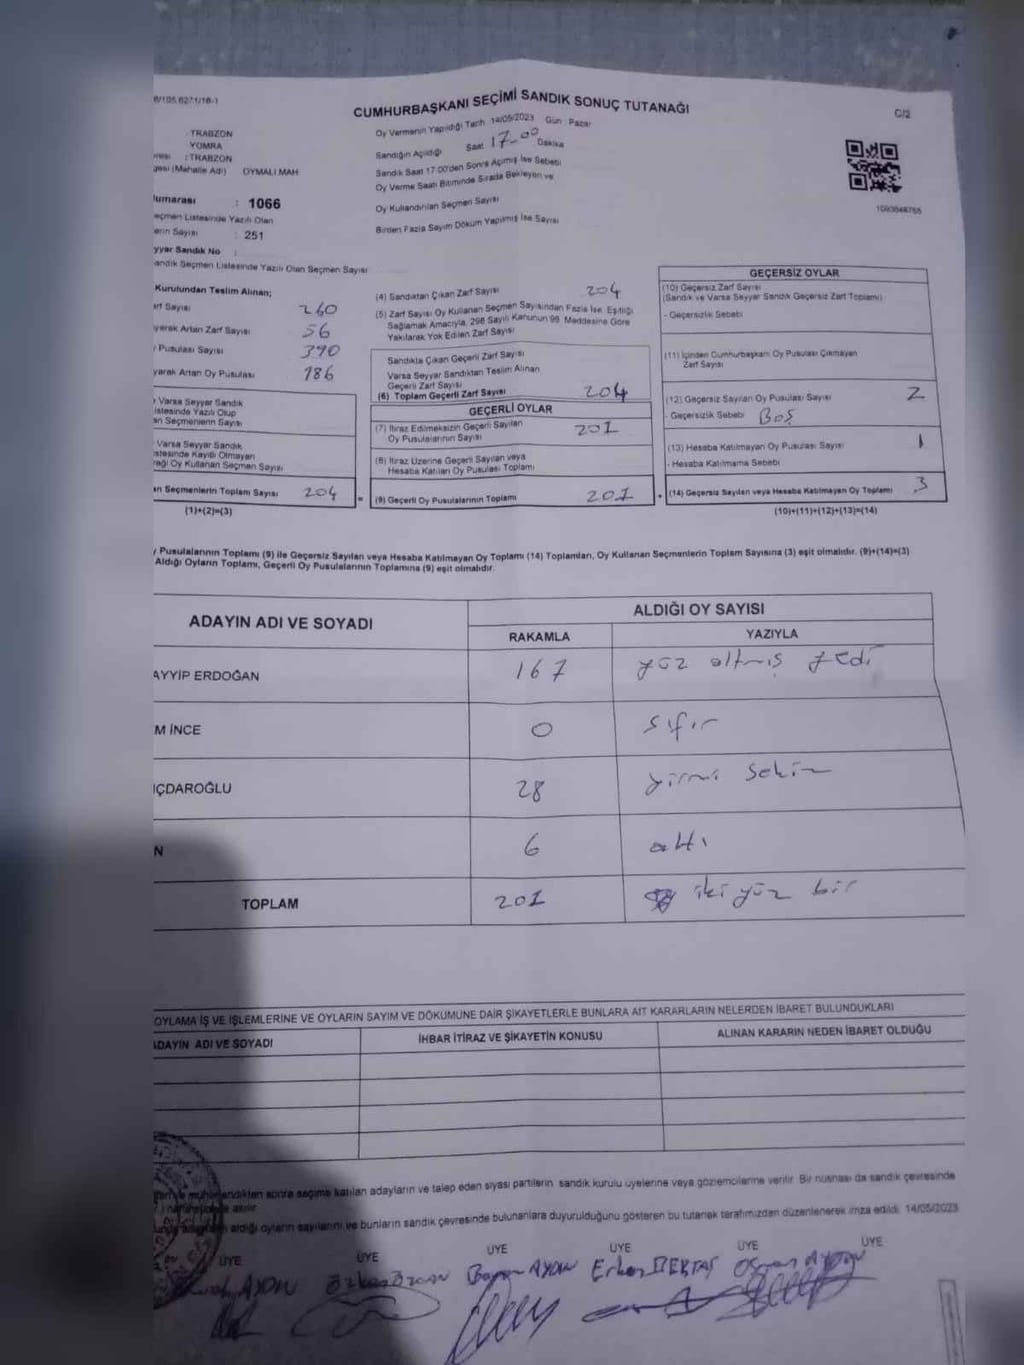 8/105.6271/18-1
CUMHURBAŞKANI SEÇİMİ SANDIK SONUÇ TUTANAĞI
C/2
TRABZON
YOMRA
: TRABZON
(Mahalle Adı) OYMALI MAH
Oy Vermenin Yapıldığı Tarih 14/05/2023 Gün : Pazar
Sandığın Açıldığı Saat 17-00 Dakika
Sandık Saat 17:00'den Sonra Açılmış İse Sebebi
Oy Verme Saati Bitiminde Sırada Bekleyen ve
Oy Kullandırılan Seçmen Sayısı
Birden Fazla Sayım Döküm Yapılmış İse Sayısı
1093848755
umarası : 1066
eçmen Listesinde Yazılı Olan
erin Sayısı : 251
yyar Sandık No :
andık Seçmen Listesinde Yazılı Olan Seçmen Sayısı
Kurulundan Teslim Alınan;
arf Sayısı 260
yarak Artan Zarf Sayısı 56
Pusulası Sayısı 390
yarak Artan Oy Pusulası 186
Varsa Seyyar Sandık
istesinde Yazılı Olup
an Seçmenlerin Sayısı
Varsa Seyyar Sandık
istesinde Kayıtlı Olmayan
reği Oy Kullanan Seçmen Sayısı
an Seçmenlerin Toplam Sayısı 204
(1)+(2)=(3)
(4) Sandıktan Çıkan Zarf Sayısı 204
(5) Zarf Sayısı Oy Kullanan Seçmen Sayısından Fazla İse, Eşitliği
Sağlamak Amacıyla, 298 Sayılı Kanunun'98. Maddesine Göre
Yakılarak Yok Edilen Zarf Sayısı
Sandıkta Çıkan Geçerli Zarf Sayısı
Varsa Seyyar Sandıktan Teslim Alınan
Geçerli Zarf Sayısı
(6) Toplam Geçerli Zarf Sayısı 204
GEÇERLİ OYLAR
(7) İtiraz Edilmeksizin Geçerli Sayılan
Oy Pusulalarının Sayısı 201
(8) İtiraz Üzerine Geçerli Sayılan veya
Hesaba Katılan Oy Pusulası Toplamı
= (9) Geçerli Oy Pusulalarının Toplamı 201
GEÇERSİZ OYLAR
(10) Geçersiz Zarf Sayısı
(Sandık ve Varsa Seyyar Sandık Geçersiz Zarf Toplamı)
- Geçersizlik Sebebi
(11) İçinden Cumhurbaşkanı Oy Pusulası Çıkmayan
Zarf Sayısı
(12) Geçersiz Sayılan Oy Pusulası Sayısı 2
- Geçersizlik Sebebi BOŞ
(13) Hesaba Katılmayan Oy Pusulası Sayısı 1
- Hesaba Katılmama Sebebi
+ (14) Geçersiz Sayılan veya Hesaba Katılmayan Oy Toplamı 3
(10)+(11)+(12)+(13)=(14)
Pusulalarının Toplamı (9) ile Geçersiz Sayılan veya Hesaba Katılmayan Oy Toplamı (14) Toplamları, Oy Kullanan Seçmenlerin Toplam Sayısına (3) eşit olmalıdır. (9)+(14)=(3)
Aldığı Oyların Toplamı, Geçerli Oy Pusulalarının Toplamına (9) eşit olmalıdır.
ADAYIN ADI VE SOYADI
ALDIĞI OY SAYISI
RAKAMLA YAZIYLA
AYYİP ERDOĞAN 167 yüz altmış yedi
M İNCE 0 sıfır
IÇDAROĞLU 28 yirmi sekiz
N 6 altı
TOPLAM 201 iki yüz bir
OYLAMA İŞ VE İŞLEMLERİNE VE OYLARIN SAYIM VE DÖKÜMÜNE DAİR ŞİKAYETLERLE BUNLARA AİT KARARLARIN NELERDEN İBARET BULUNDUKLARI
ADAYIN ADI VE SOYADI İHBAR İTİRAZ VE ŞİKAYETİN KONUSU ALINAN KARARIN NEDEN İBARET OLDUĞU
mühürlendikten sonra seçime katılan adayların ve talep eden siyasi partilerin sandık kurulu üyelerine veya gözlemcilerine verilir. Bir nüshası da sandık çevresinde
aldığı oyların sayılarını ve bunların sandık çevresinde bulunanlara duyurulduğunu gösteren bu tutanak tarafımızdan düzenlenerek imza edildi. 14/05/2023
ÜYE ÜYE ÜYE ÜYE ÜYE ÜYE
AYDIN Özkan ÖZCAN AYDIN Erkan BEKTAŞ Osman AYDIN